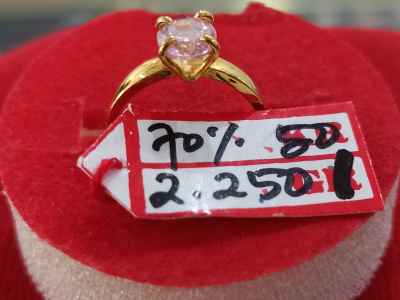 70% 50
2.250